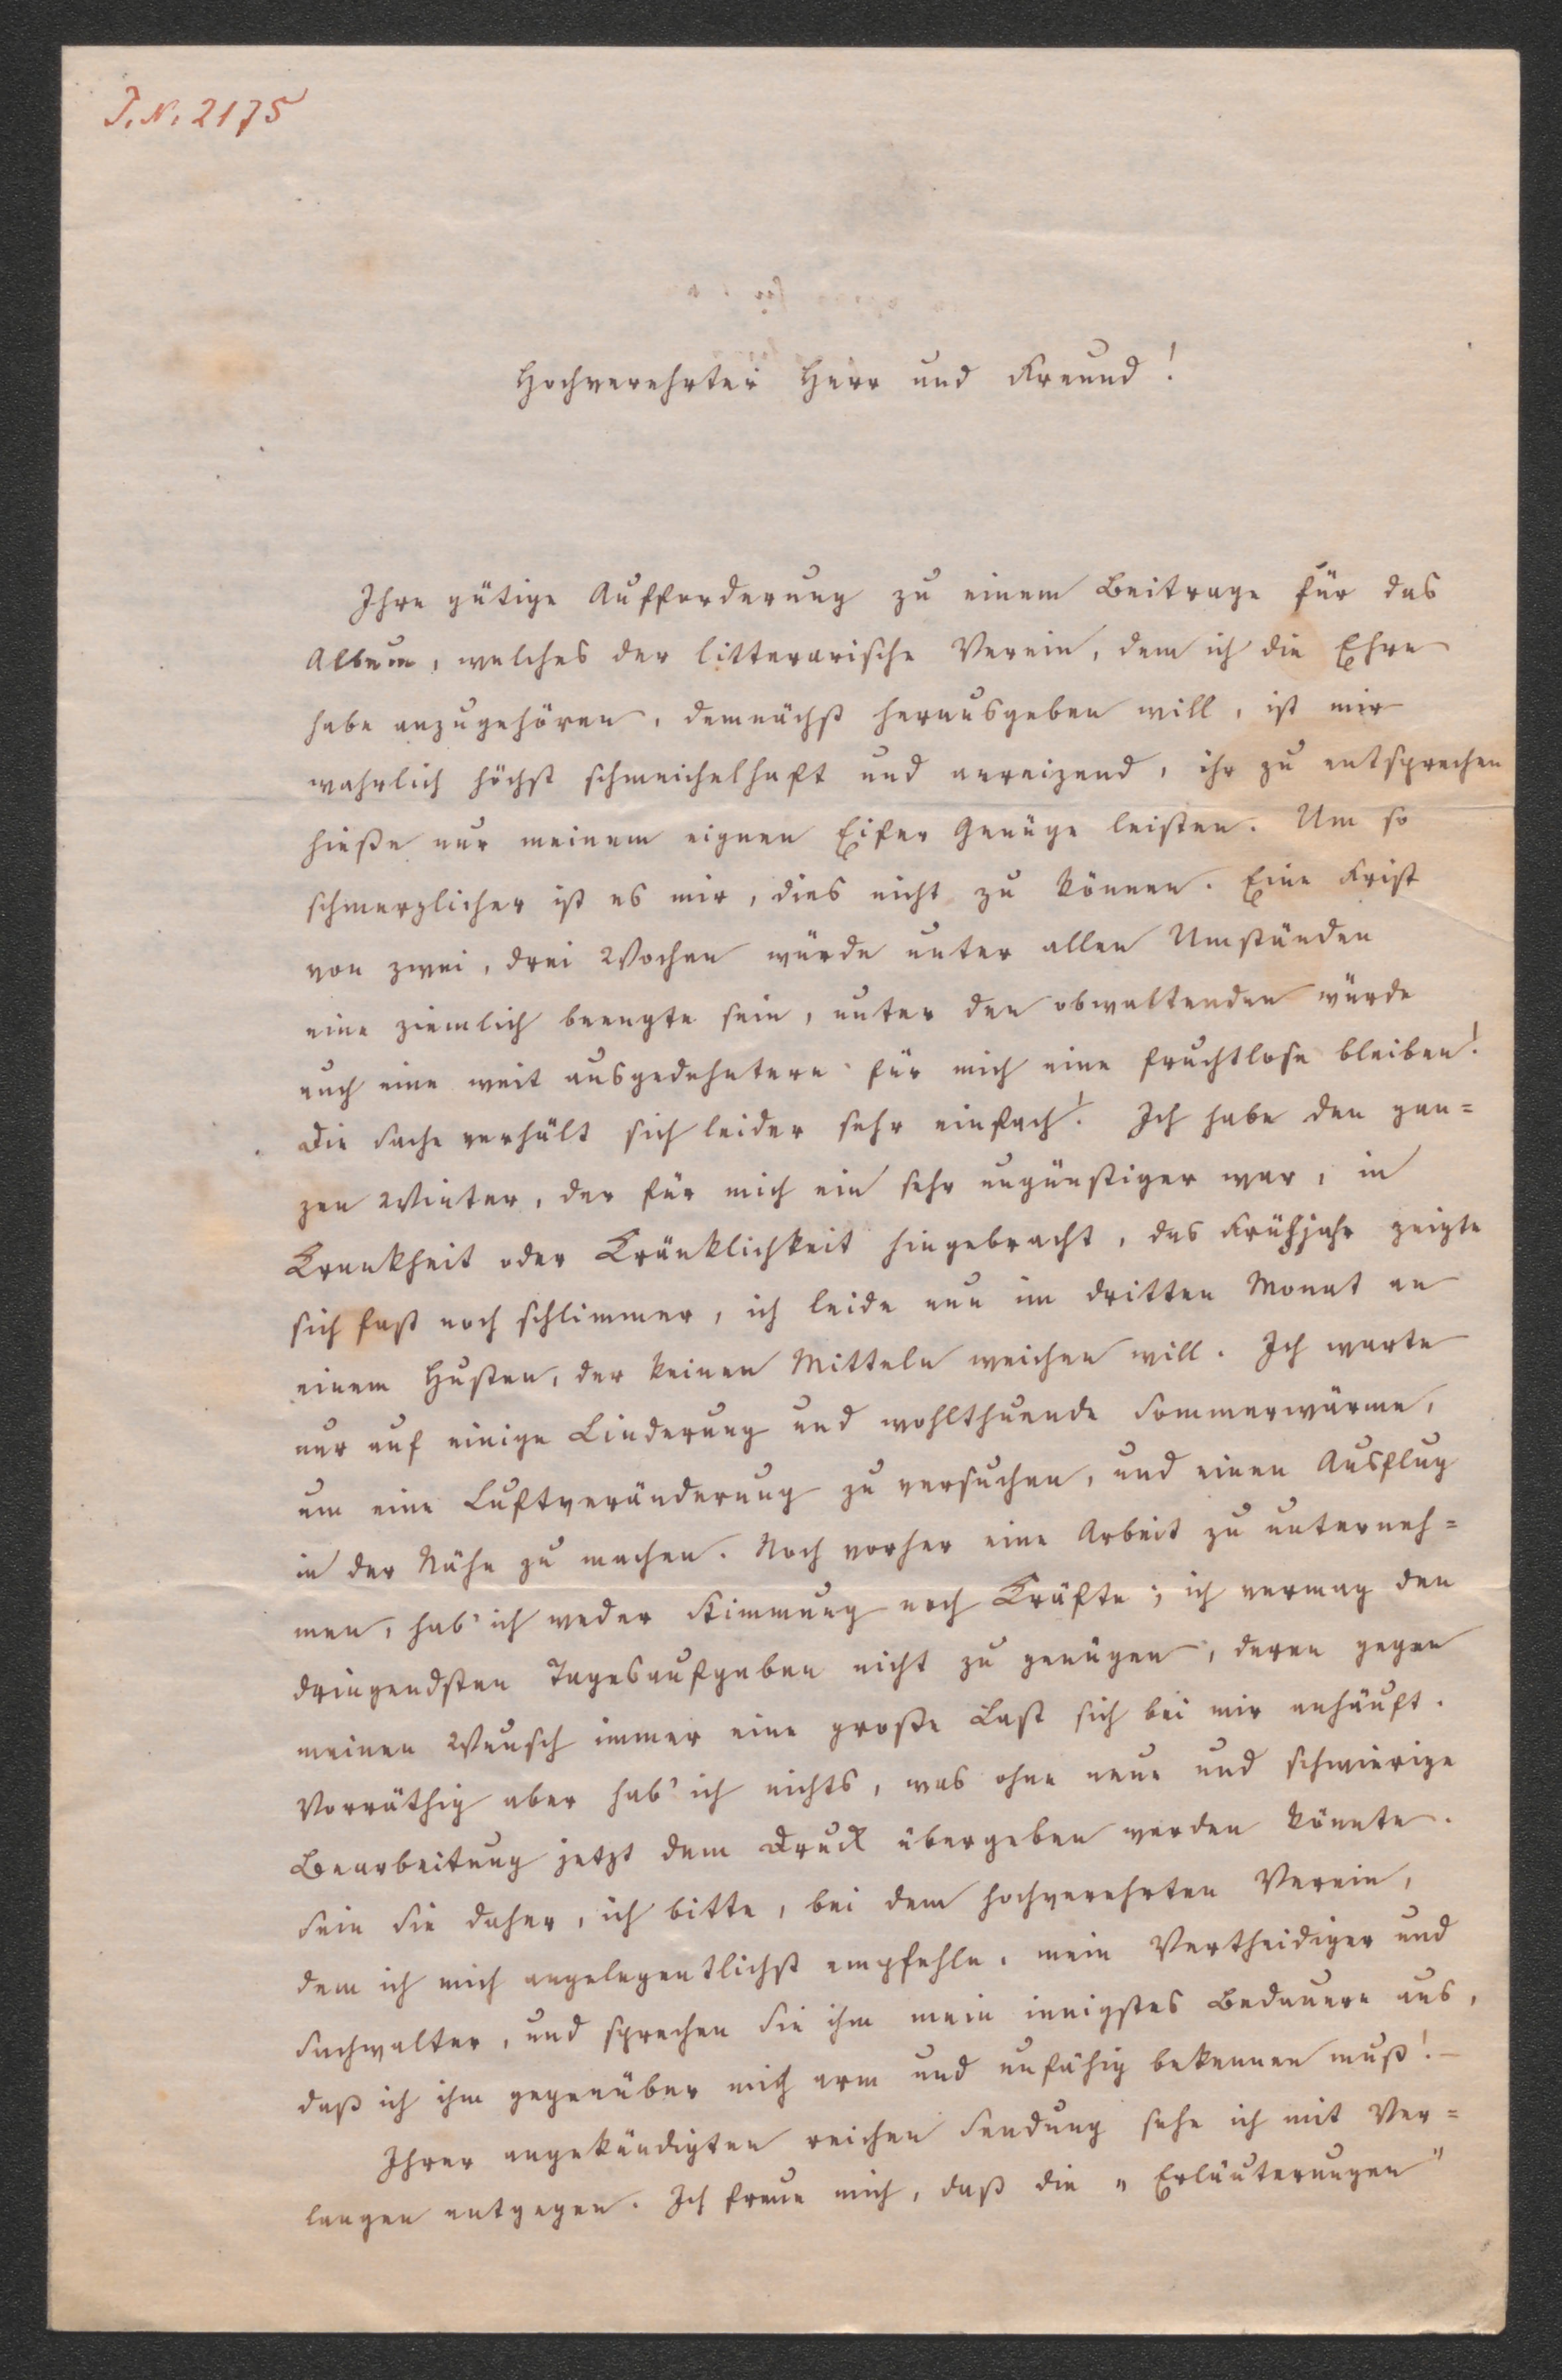 J. N. 2175
Hochverehrter Herr und Freund!
Ihre gütige Aufforderung zu einem Beitrage für das
Album, welches der litterarische Verein, dem ich die Ehre
habe anzugehören, demnächst herausgeben will, ist mir
wahrlich höchst schmeichelhaft und anreizend, ihr zu entsprechen
hieße nur meinem eignen Eifer Genüge leisten. Um so
schmerzlicher ist es mir, dies nicht zu können. Eine Frist
von zwei, drei Wochen würde unter allen Umständen
eine ziemlich beengte sein, unter den obwaltenden würde
auch eine weit ausgedehntere für mich eine fruchtlose bleiben!
Die Sache verhält sich leider sehr einfach! Ich habe den gan=
zen Winter, der für mich ein sehr ungünstiger war, in
Krankheit oder Kränklichkeit hingebracht, das Frühjahr zeigte
sich fast noch schlimmer, ich leide nun im dritten Monat an
einem Husten, der keinen Mitteln weichen will. Ich warte
nur auf einige Linderung und wohlthuende Sommerwärme,
um eine Luftveränderung zu versuchen, und einen Ausflug
in der Nähe zu machen. Noch vorher eine Arbeit zu unterneh=
men, hab' ich weder Stimmung noch Kräfte; ich vermag den
dringendsten Tagesaufgaben nicht zu genügen, deren gegen
meinen Wunsch immer eine große Last sich bei mir anhäuft.
Vorräthig aber hab' ich nichts, was ohne neue und schwierige
Bearbeitung jetzt dem Druck übergeben werden könnte.
Sein Sie daher, ich bitte, bei dem hochverehrten Verein,
dem ich mich angelegentlichst empfehle, mein Vertheidiger und
Sachwalter, und sprechen Sie ihm mein innigstes Bedauern aus,
daß ich ihm gegenüber mich arm und unfähig bekennen muß! –
Ihrer angekündigten reichen Sendung sehe ich mit Ver=
langen entgegen. Ich freue mich, daß die „Erläuterungen"